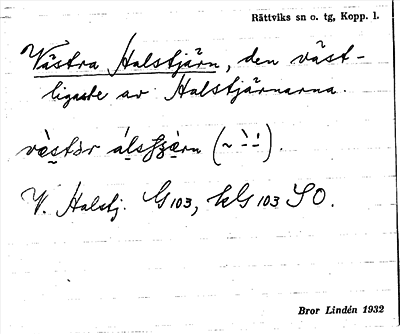 Rättviks sn o. tg, Kopp. l.
Västra Halstjärn, den väst-
ligaste av Halstjärnarna.
V. Halstj. G103, kG 103 SO.
Bror Lindén 1932